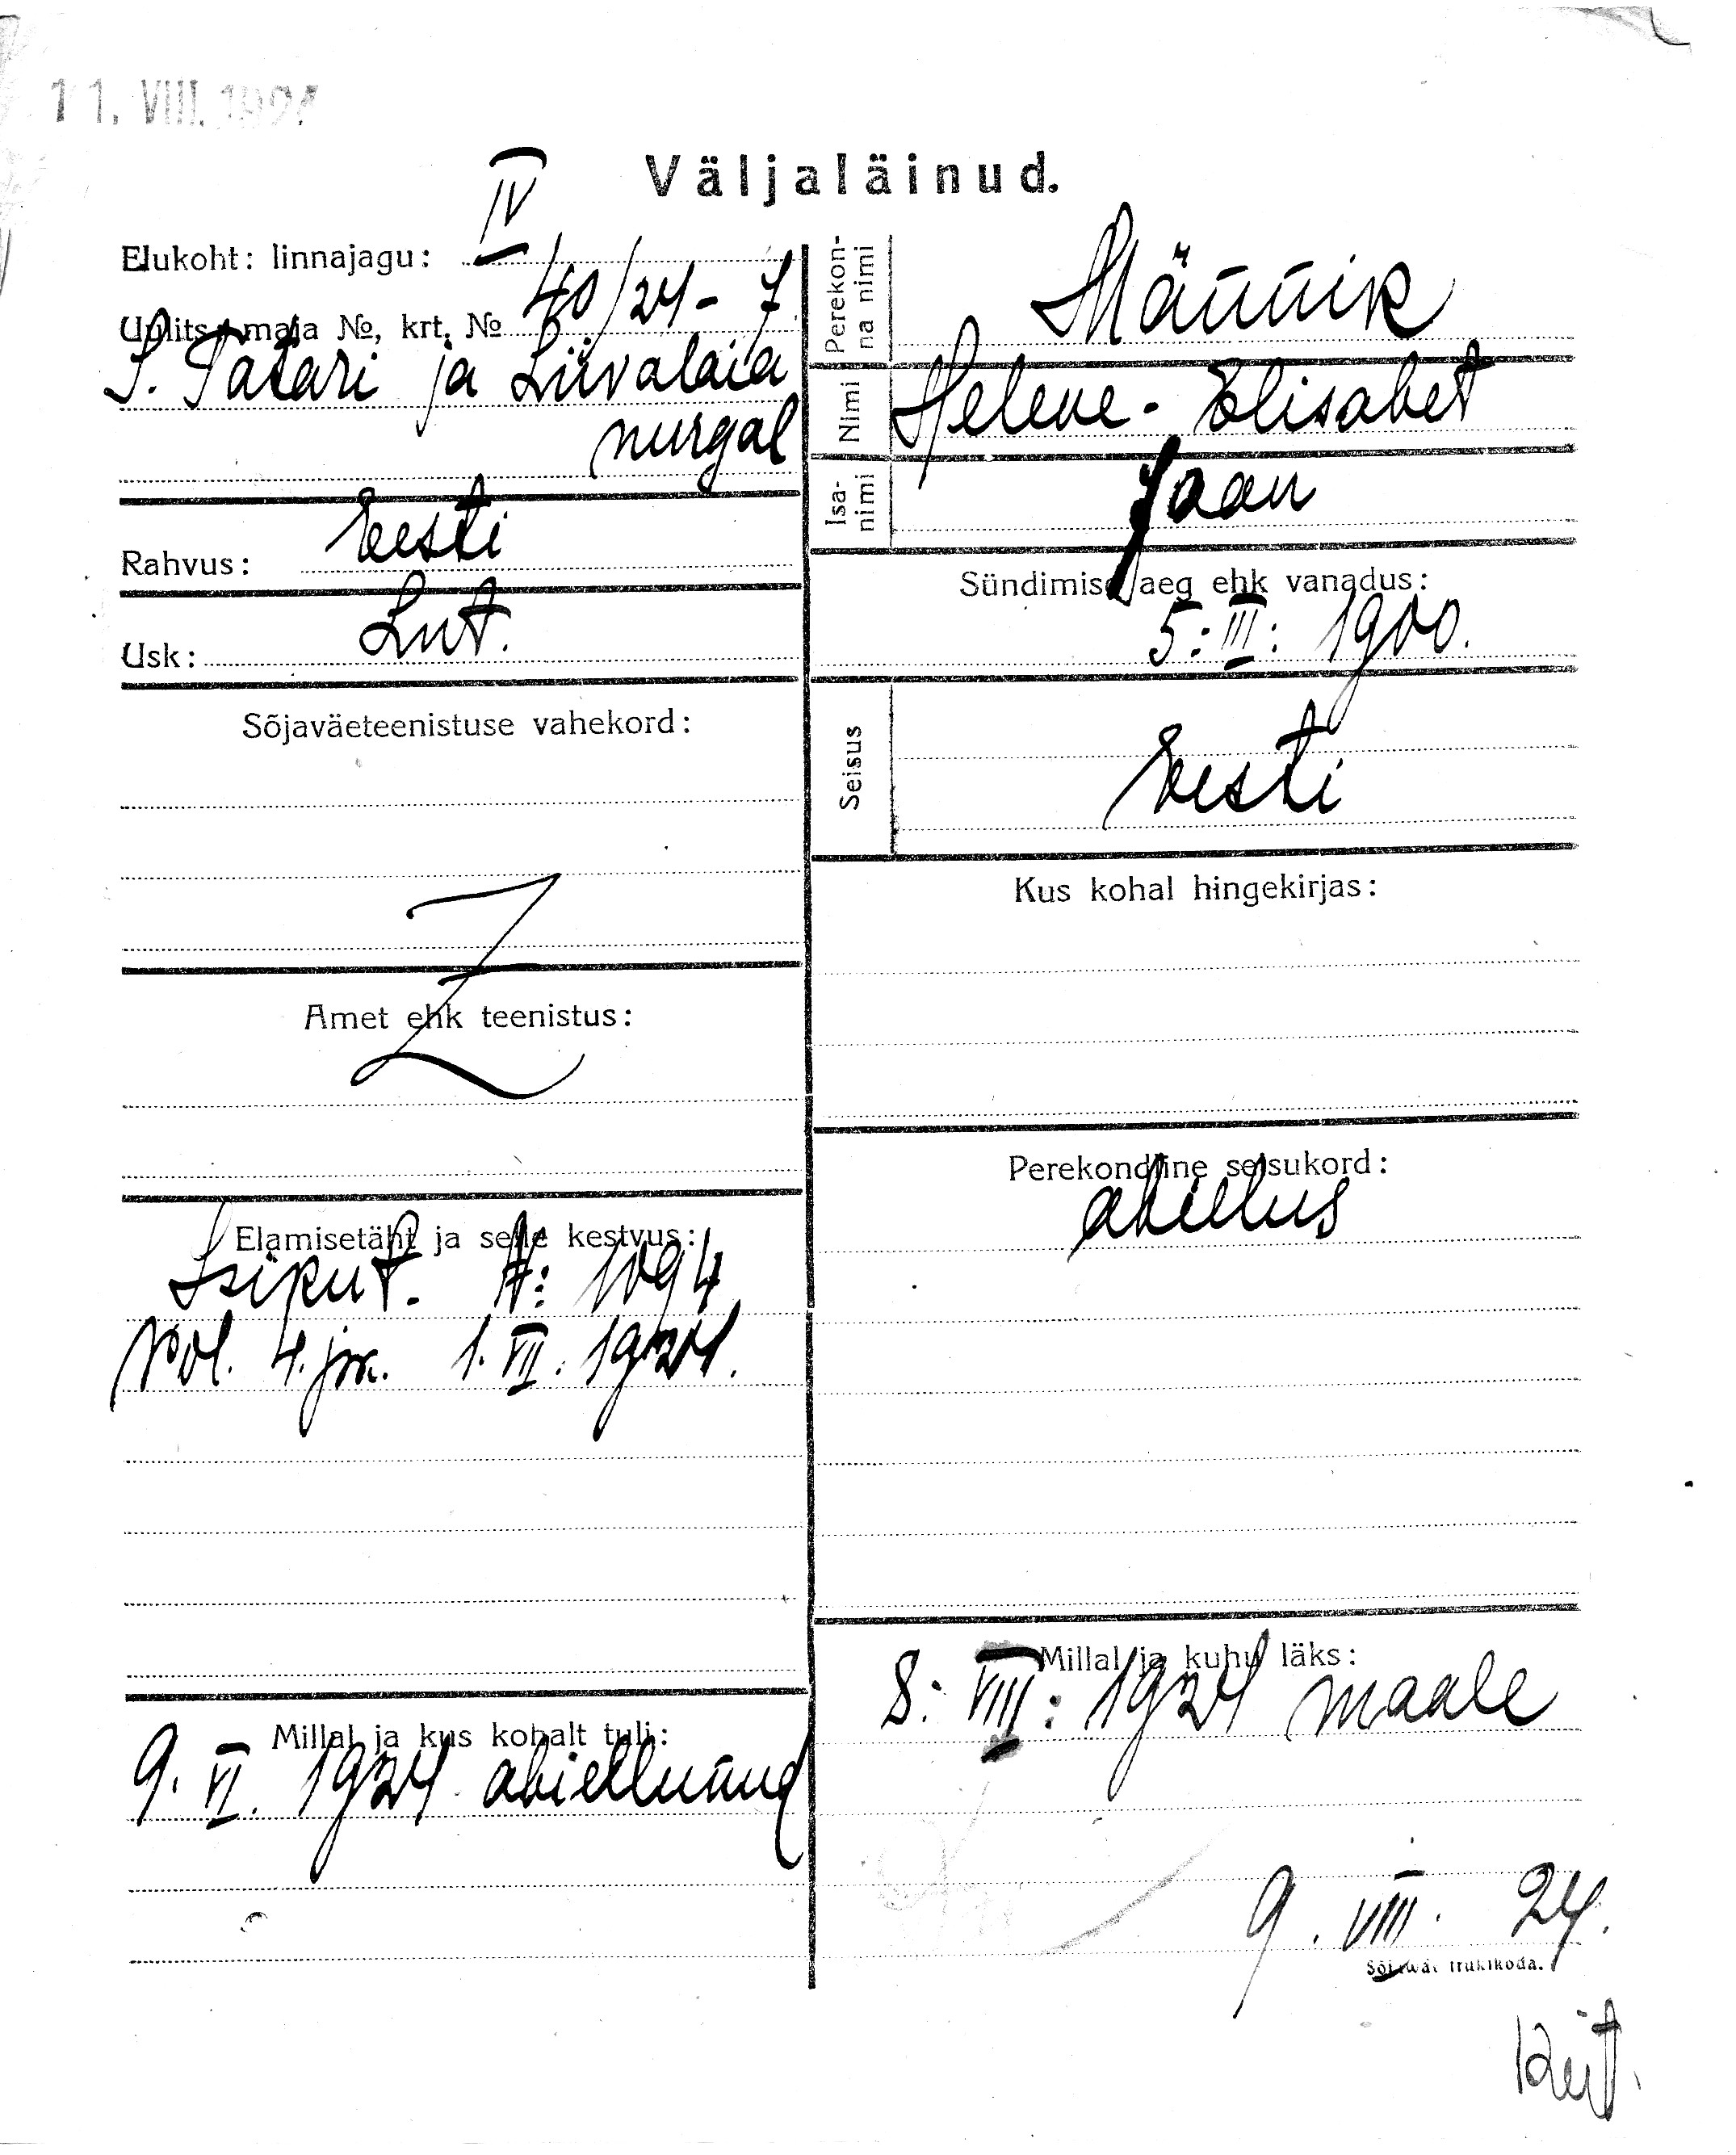 11. VIII. 192
Väljaläinud.
Elukoht: linnajagu: IV
Uulits, maja №, krt. № 40/24 - 7
S. Tatari ja Liivalaia
nurgal
Rahvus: Eesti
Usk: Lut.
Sõjaväeteenistuse vahekord:
Amet ehk teenistus:
Elamisetäht ja selle kestvus:
Isikut. N: 1094
Pol. 4. jsk. 1. VII. 1924.
Millal ja kus kohalt tuli:
9. VI. 1924 abiellunud
Perekonna nimi Männik
Nimi Helene - Elisabet
Isanimi Jaan
Sündimise aeg ehk vanadus:
5: III: 1900.
Seisus Eesti
Kus kohal hingekirjas:
Perekondline seisukord:
abielus
Millal ja kuhu läks:
8: VIII: 1924 maale
9. VIII. 24.
trükikoda.